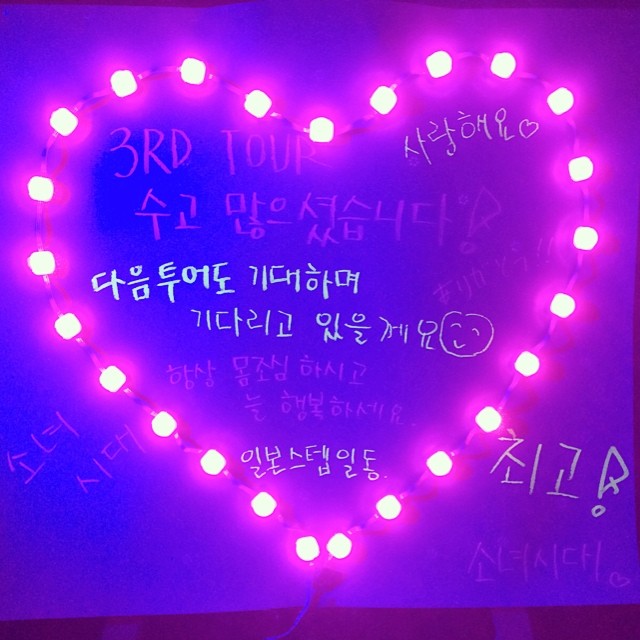 3RD TOUR
사랑해요♡
수고 많으셨습니다!
ありがとう!!
다음투어도 기대하며
기다리고 있을께요
항상 몸조심 하시고
늘 행복하세요.
소녀
시대
일본스텝일동.
최고!
소녀시대♡